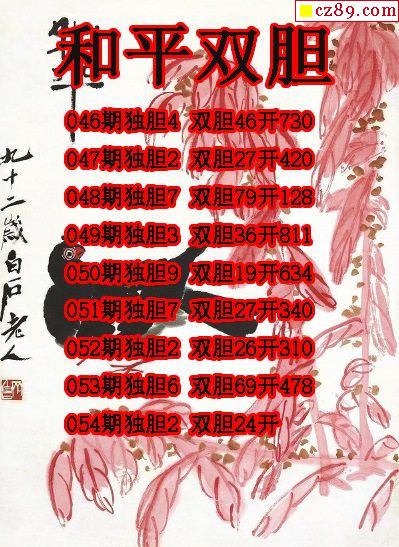 cz89.com
和平双胆
046期独胆4 双胆46开730
047期独胆2 双胆27开420
048期独胆7 双胆79开128
049期独胆3 双胆36开811
050期独胆9 双胆19开634
051期独胆7 双胆27开340
052期独胆2 双胆26开310
053期独胆6 双胆69开478
054期独胆2 双胆24开
九十二岁白石老人